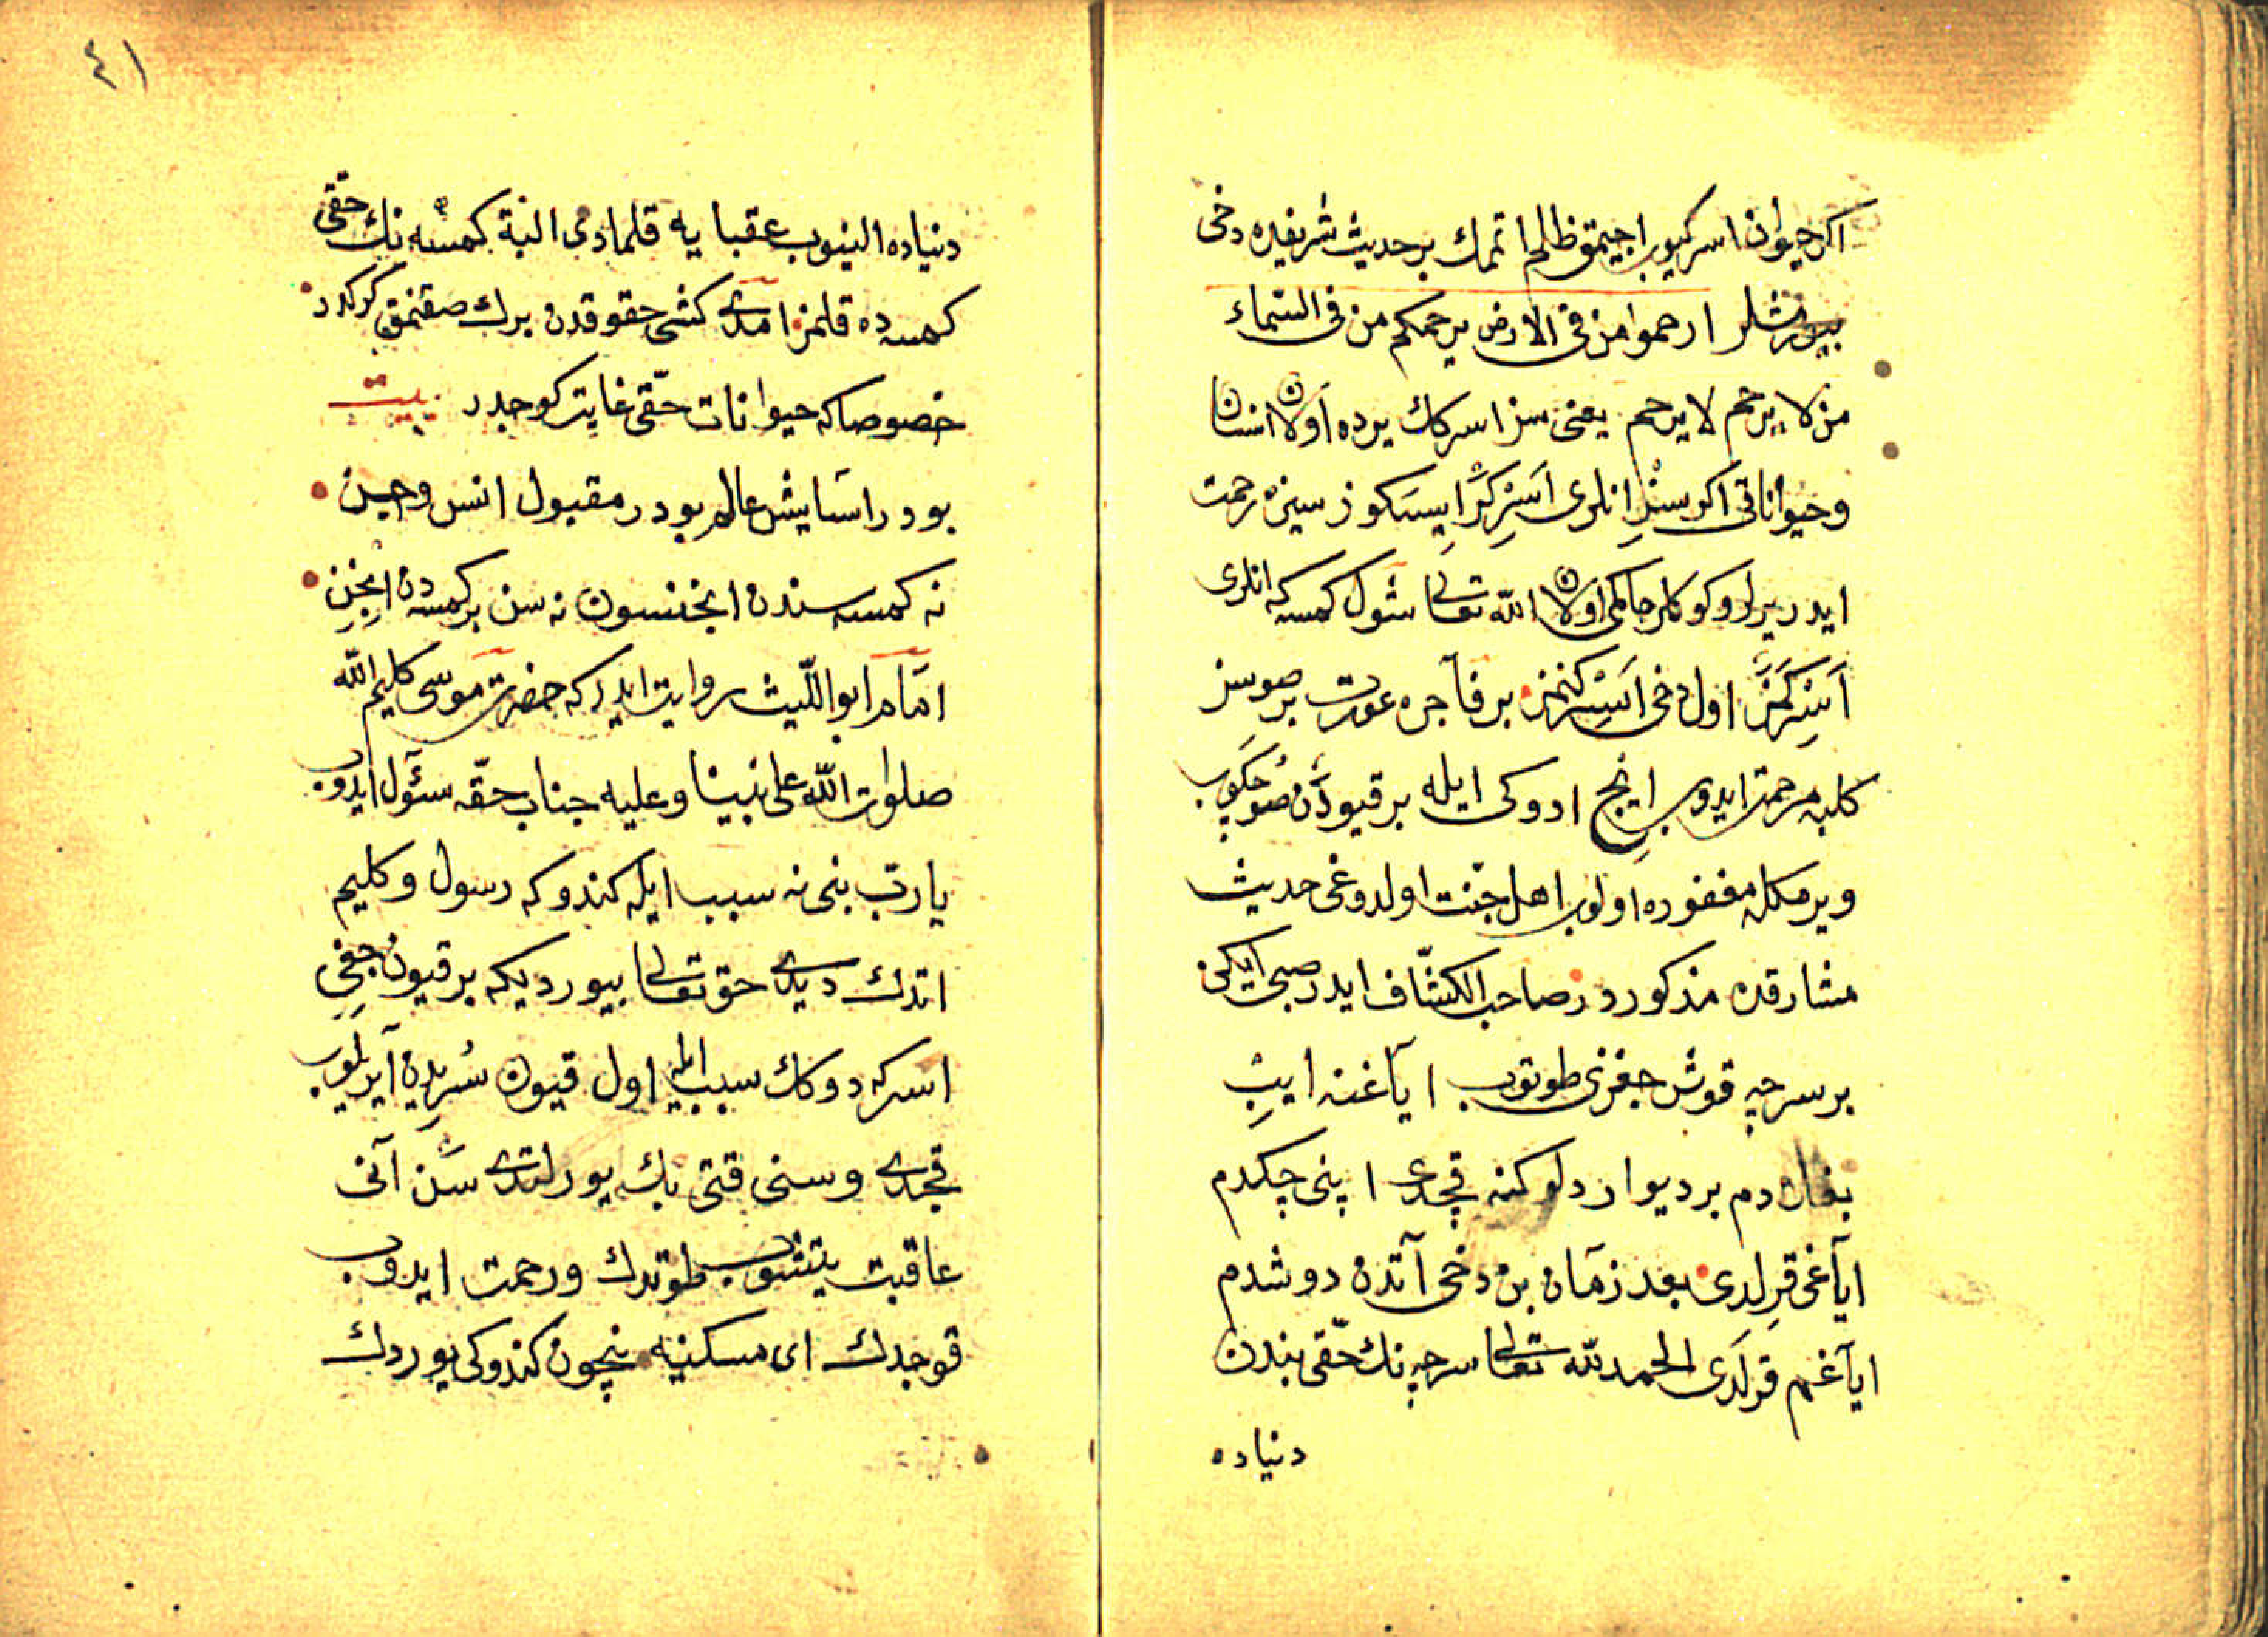 اكر حيوان اسركيوب اجيمق ظالم اتمك بر حديث شريفده دخی
بيورمشلر ارحموا من فی الارض يرحمكم من فی السّماء
من لا يرحم لا يرحم يعنی سز اسركك يرده اولان انسانا
وحيواناتی اكر سز انلری اسركر ايسكوز سيزه رحمت
ايدر يرلر وكوكلر حاكمی اولان الله تعالی شول كمسه كه انلری
اسركمز اول دخی اسركنمز بر فاجره عورت بر صوسز
كلبه مرحمت ايدوب ايچ ادوكی ايله بر قيودن صو چكوب
ويرمكله مغفوره اولوب اهل جنّت اولدوغی حديث
مشارقده مذكوردر صاحب الكشّاف ايدر صبی ايكن
بر سرچه قوش جغزی طوتوب اياغنه ايپ
بغلادم بر ديوار دلوكنه قچدی ايپنی چكدم
اياغی قرلدی بعد زمان بن دخی آتدن دوشدم
اياغم قرلدی الحمد لله تعالی سرچه نك حقّی بندن
دنياده
٤١
دنياده النيوب عقبايه قلمادی البتة كمسه نك حقّی
كمسه ده قلمز امدی كشی حقوقدن برك صقنمق كركدر
خصوصا كه حيوانات حقّی غايت كوجدر بيت
بودر اسايش عالم بودر مقبول انس وجن
نه كمسه سندن انجنسون نه سن بر كمسه دن انجن
امام ابو اللّيث روايت ايدر كه حضرت موسی كليم الله
صلوات الله علی نبينا وعليه جناب حقّه سئول ايدوب
يا ربّ بنی نه سبب ايله كندوكه رسول وكليم
اتدك ديدی حق تعالی بيوردیكه بر قيون جغی
اسركه دوكك سبب ايله اول قيون سريدن آيرلوب
قچدی وسنی قتی بك يورلتدی سن آنی
عاقبت يتشوب طوتدك ورحمت ايدوب
قوجدك ای مسكينه نيچون كندوكی يوردك